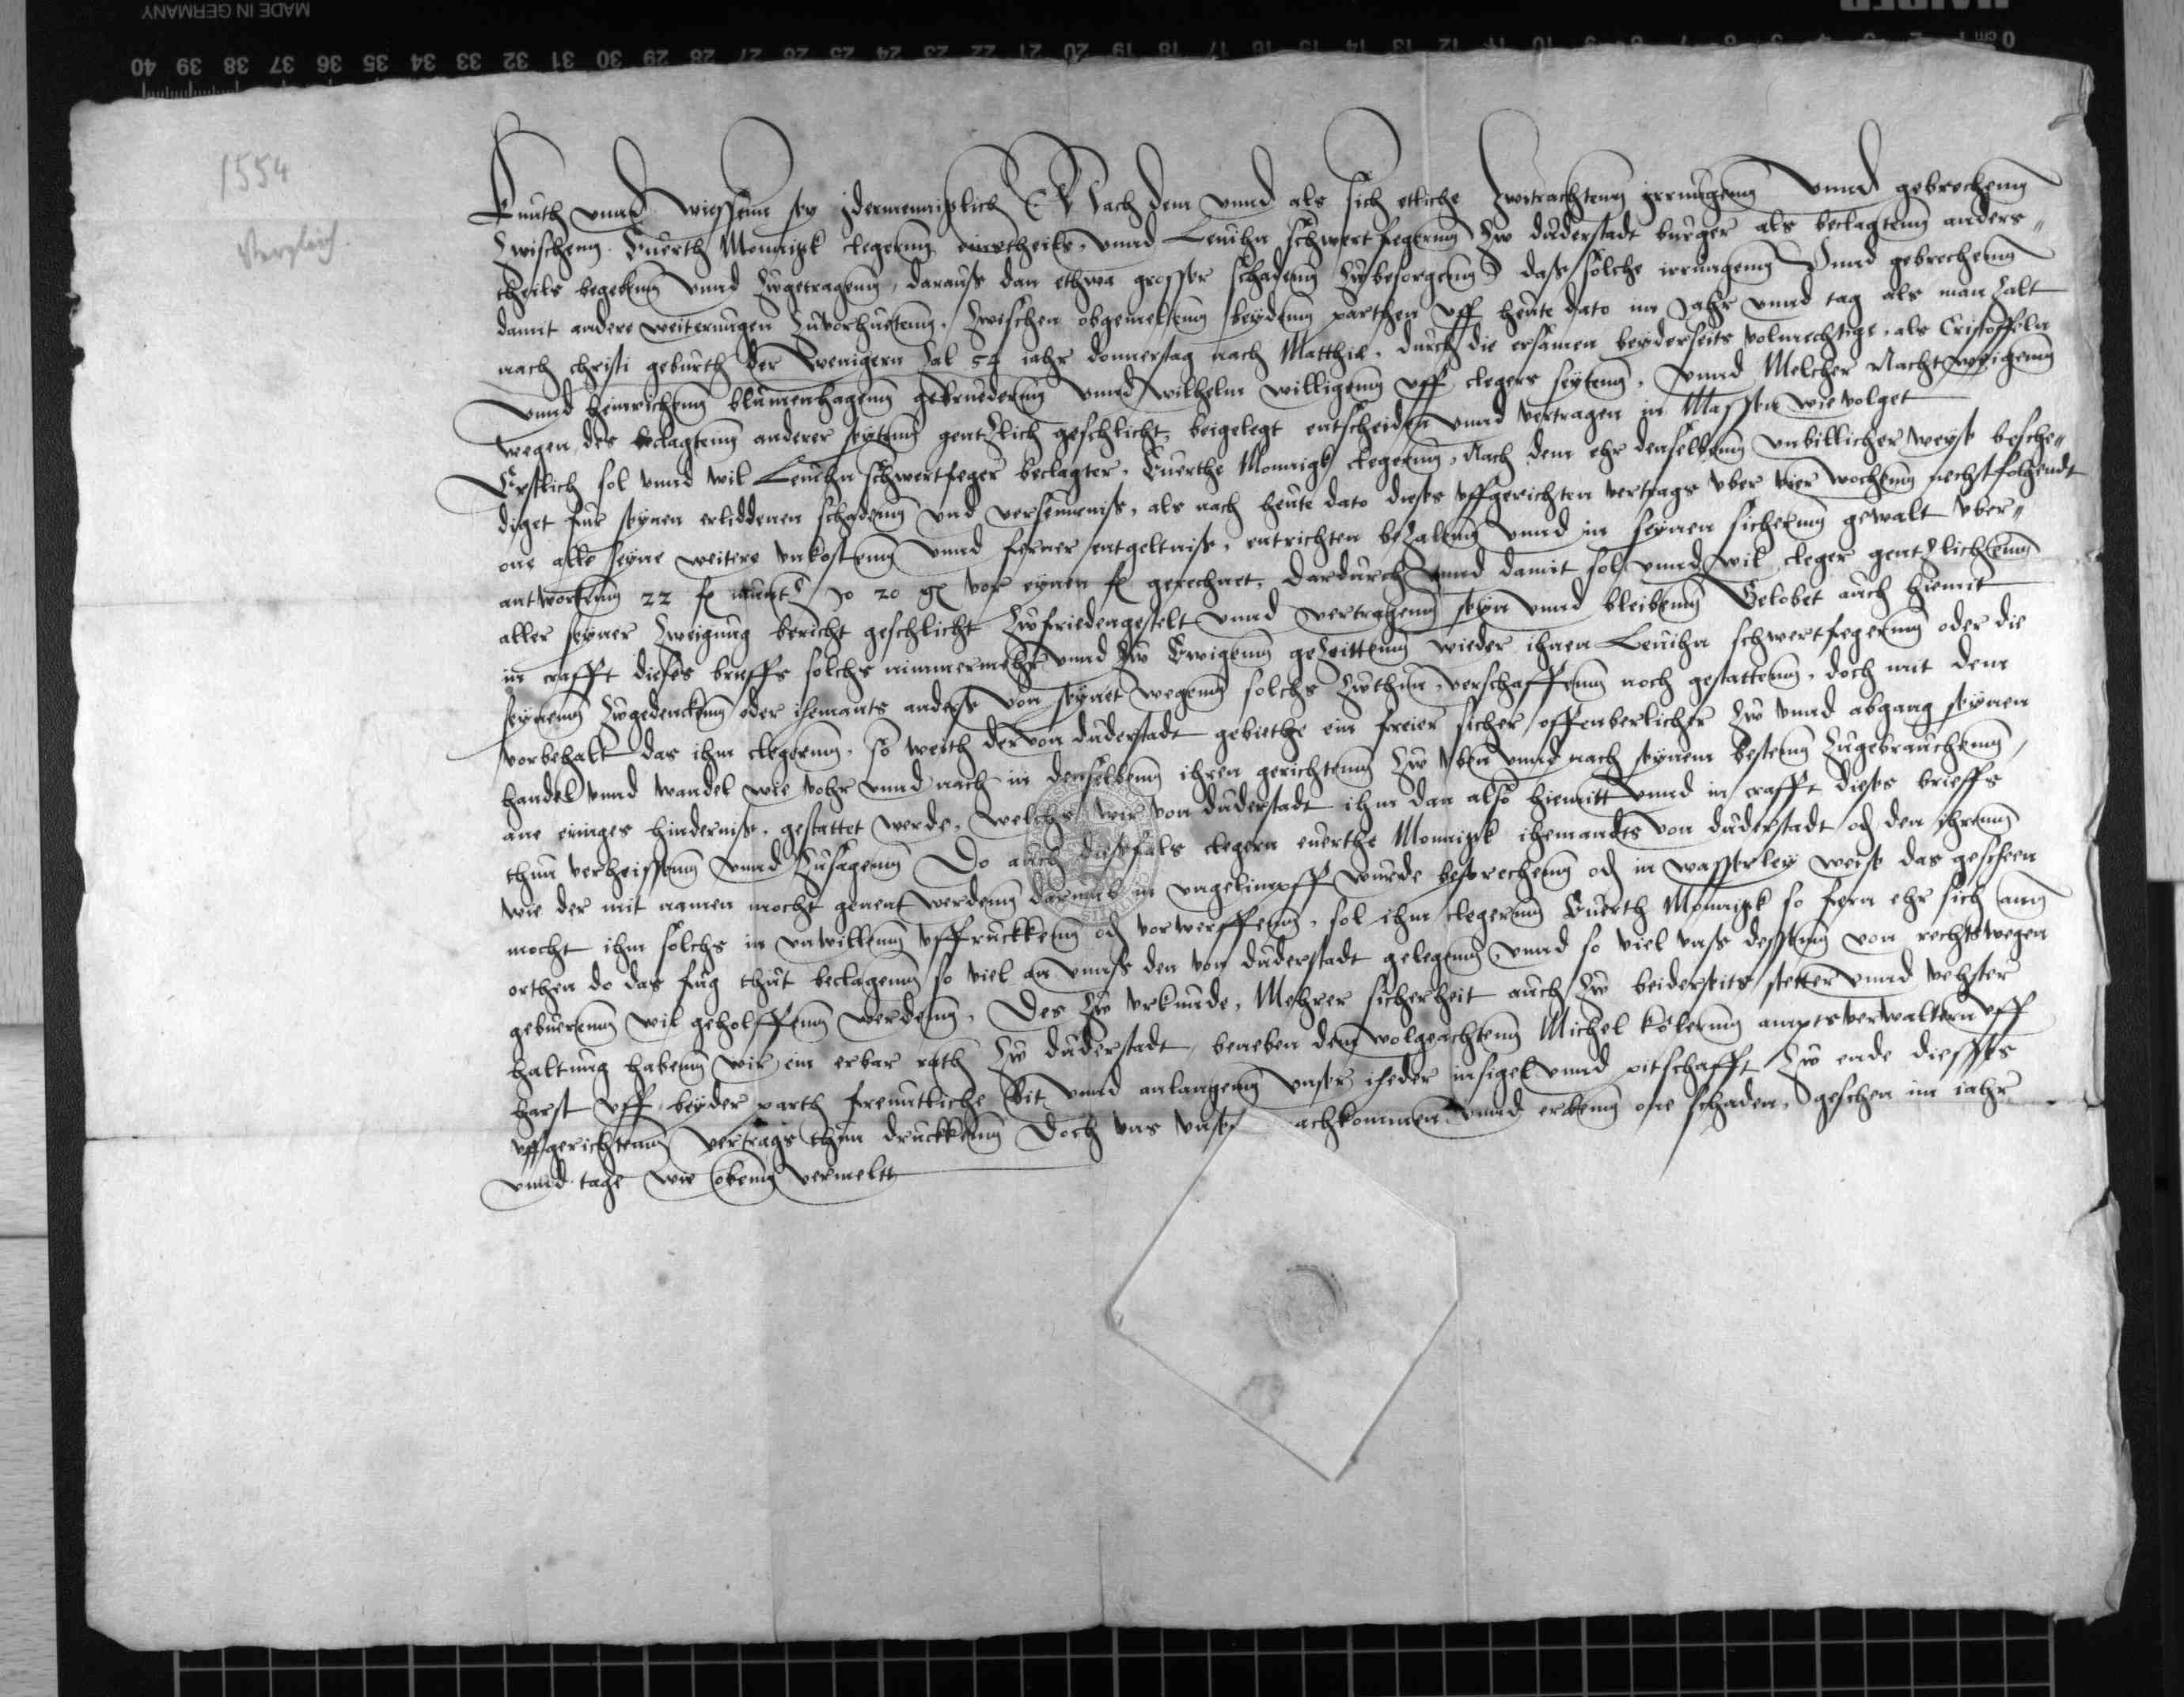 MADE IN GERMANY
40 39 38 37 36 35 34 33 32 31 30 29 28 27 26 25 24 23 22 21 20 19 18 17 16 15 14 13 12 11 10 9 8 7 6 5 4 3 2 1 0 cm
1554
Vergleich.
Kunth vnnd wiessenn sey idermenniglich Nach dem vnnd als sich etliche Zwitrachtenn jrrungenn vnnd gebrechenn
Zwischenn Euerth Monnigk clegernn einstheils, vnnd Leuihn schwertfegernn Zw duderstadt burger als beclagtenn anders„
theils begebenn vnnd Zwgetragenn, darauss dan ethwa grosser schadenn Zwbesorgenn, dass solche irrungenn Vnnd gebrechenn
damit andere weiterungen Zuvorhuetenn. Zwischen obgemeltenn beydenn parthen vff heute dato im Jahr vnnd tag als man Zalt
nach christi geburth der Wenigern Zal 54 iahr donnerstag nach Matthie, durch die ersamen beyderseits volmechtige, als Cristoffeln
vnnd Heinrichenn blumenhagenn gebruedernn vnnd Wilhelm willigenn vff clegers seytenn, vnnd Melcher Nachtweigenn
wegen des beclagtenn anderer seytenn gentzlich geschlicht, beigelegt entscheiden vnnd vertragen in Massen wie volget
Erstlich sol vnnd wil Leuihn schwertfeger beclagter, Euerthe Monnigk clegernn, Nach dem ehr denselbenn vnbillicher weyse besche„
diget fur seynen erliddenen schadenn vnd verseumniss, als nach heute dato dieses vffgerichten vertrags vber vier wochenn nechstfolgendt
one alle seyne weitere vnkostenn vnnd ferner entgeltniss, entrichten bezalenn vnnd in seynen sichernn gewalt vber„
antwortenn 22 fl 20 gl vor eynen fl gerechnet. Dardurch vnnd damit sol vnnd wil cleger gentzlichenn
aller seyner Zweigung bericht geschlicht Zwfriedengestelt vnnd vertragenn seyn vnnd bleibenn Gelobet auch hiemit
in crafft dieses brieffs solchs nimmermehr vnnd Zw Ewigenn gezeittenn wieder ihnen Leuihn schwertfegernn oder die
seynenn Zwgedenckenn oder ihemants anders von seynet wegenn solchs Zwthun, verschaffenn noch gestattenn, doch mit dem
vorbehalt das ihm clegernn, so weith der von duderstadt gebiethe ein freier sicher offenberlicher Zw vnnd abgang seynen
handel vnnd wandel wie vohr vnnd nach in denselbenn ihren gerichtenn Zw vben vnnd nach seynem bestenn Zugebrauchenn,
ane einiges hinderniss, gestattet werde, welchs wir von duderstadt ihm dan also hiemitt vnnd in crafft dieses brieffs
thun verheissenn vnnd Zusagenn Do auch diessfals clegern euerthe Monnigk ihemandts von duderstadt od den ihrenn
wie der mit namen mocht genent werdenn darumb in vngelimpff wurde besprechenn od in wasserley weise das gescheen
mocht ihm solchs in vnwillenn vffruckkenn od vorwerffenn, sol ihm clegernn Euerth Monnigk so fern ehr sich ann
orthen do das fug thut beclagenn so viel an vnnss den von duderstadt gelegenn, vnnd so viel vnss dessenn von rechtswegen
geburenn wil geholffenn werdenn. Des Zw vrkunde, Mehrer sicherheit auch Zw beiderseits stetter vnnd vehster
haltung habenn wir ein erbar rath Zw duderstadt, beneben dem wolgeachtenn Michel Kolernn amptsverwaltern vff
harst vff beyder parth freuntliche bit vnnd anlangenn vnser iheder insigel vnnd pitschafft Zw ende diesses
vffgerichtenn vertrags thun druckkenn Doch vns vnse achkommen vnnd erbenn one schaden, geschen im iahr
vnnd tage wie obenn vermelt